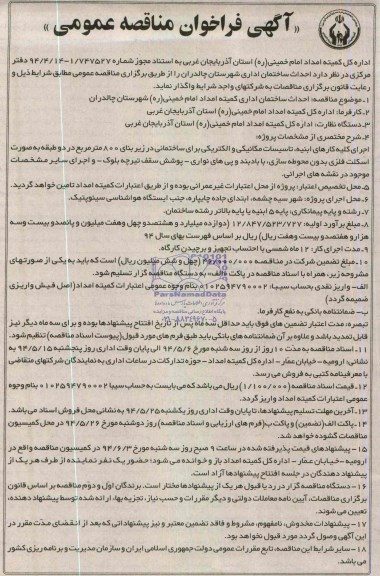 «آگهی فراخوان مناقصه عمومی»
اداره کل کمیته امداد امام خمینی(ره) استان آذربایجان غربی به استناد مجوز شماره ۹۴/۴/۱۴-۱/۷۴۷۵۲۷ دفتر
مرکزی در نظر دارد احداث ساختمان اداری شهرستان چالدران را از طریق برگزاری مناقصه عمومی مطابق شرایط ذیل و
رعایت قانون برگزاری مناقصات به شرکتهای واجد شرایط واگذار نماید.
۱-موضوع مناقصه: احداث ساختمان اداری کمیته امداد امام خمینی(ره) شهرستان چالدران
۲-کارفرما: اداره کل کمیته امداد امام خمینی(ره) استان آذربایجان غربی
۳-دستگاه نظارت: اداره کل کمیته امداد امام خمینی(ره) استان آذربایجان غربی
۴-شرح مختصری از مشخصات پروژه:
اجرای کلیه کارهای ابنیه، تاسیسات مکانیکی و الکتریکی برای ساختمانی در زیر بنای ۸۰۰ مترمربع در دو طبقه به صورت
اسکلت فلزی بدون محوطه سازی، با بادبند و پی های نواری - پوشش سقف تیرچه بلوک - و اجرای سایر مشخصات
موجود در نقشه های اجرائی.
۵-محل تخصیص اعتبار: پروژه از محل اعتبارات غیرعمرانی بوده و از طریق اعتبارات کمیته امداد تامین خواهد گردید.
۶-محل اجرای پروژه: شهر سیه چشمه، ابتدای جاده چایپاره، جنب ایستگاه هواشناسی سینوپتیک.
۷-رشته و پایه پیمانکاری: پایه ۵ ابنیه یا پایه بالاتر رشته ساختمان.
۸-مبلغ برآورد اولیه: ۱۲/۸۴۷/۵۲۳/۷۲۷ (دوازده میلیارد و هشتصدو چهل وهفت میلیون و پانصدو بیست وسه
هزارو هفتصدو بیست وهفت ریال) ریال بر اساس فهرست بهای سال ۹۴
۹-مدت اجرای کار: ۱۲ ماه شمسی با احتساب تجهیز و برچیدن کارگاه.
۱۰-مبلغ تضمین شرکت در مناقصه ریال (چهل و شش میلیون ریال) است که باید به یکی از صورتهای
مشروحه زیر، همراه با اسناد مناقصه در پاکت «الف» به دستگاه مناقصه گزار تسلیم شود.
الف-واریز نقدی بحساب سیبا: ۰۱۰۲۵۹۴۷۹۰۰۰۲ بنام وجوه عمومی اعتبارات کمیته امداد(اصل فیش واریزی
ضمیمه گردد)
ب-ضمانتنامه بانکی به نفع کارفرما.
تبصره: مدت اعتبار تضمین های فوق باید حداقل سه ماه پس از تاریخ افتتاح پیشنهادها بوده و برای سه ماه دیگر نیز
قابل تمدید باشد و علاوه بر آن ضمانتنامه های بانکی باید طبق فرم های مورد قبول(پیوست اسناد مناقصه) تنظیم شود.
۱۱-اسناد مناقصه به مدت ۱۰ روز از روز سه شنبه مورخ ۹۴/۵/۶ الی پایان وقت اداری روز پنجشنبه ۹۴/۵/۱۵ به
نشانی: ارومیه-خیابان عمار- اداره کل کمیته امداد- حوزه تدارکات در ساعات اداری به نمایندگان شرکتهای متقاضی
با معرفینامه کتبی به فروش می رسد.
۱۲-قیمت اسناد مناقصه (۱/۱۰۰/۰۰۰) ریال می باشد که می بایست به حساب سیبا ۰۱۰۲۵۹۴۷۹۰۰۰۲ بنام وجوه
عمومی اعتبارات کمیته امداد واریز گردد.
۱۳-آخرین مهلت تسلیم پیشنهادها، تا پایان وقت اداری روز یکشنبه ۹۴/۵/۲۵ به نشانی محل فروش اسناد می باشد.
۱۴-پاکت الف(تضمین) و پاکت ب(فرم های ارزیابی و اسناد مناقصه) روز دوشنبه مورخ ۹۴/۵/۲۶ در محل کمیسیون
مناقصات گشوده خواهد شد.
۱۵-پیشنهادهای قیمت پذیرفته شده در ساعت ۹ صبح روز سه شنبه مورخ ۹۴/۶/۳ در کمیسیون مناقصه واقع در
ارومیه-خیابان عمار- اداره کل کمیته امداد باز و خوانده می شود؛ حضور یک نفر نماینده از طرف هر یک از
پیشنهاد دهندگان در جلسه افتتاح پیشنهادها آزاد است.
۱۶-دستگاه مناقصه گزار در رد یا قبول هر یک از پیشنهادها مختار است. برندگان اول و دوم مناقصه بر اساس قانون
برگزاری مناقصات، آیین نامه معاملات دولتی و دیگر مقررات و حسب نیاز، تجزیه بها، ارائه شده توسط پیشنهاد دهنده،
تعیین می شوند.
۱۷- پیشنهادات مخدوش، نامفهوم، مشروط و فاقد تضمین معتبر و نیز پیشنهاداتی که بعد از انقضای مدت مقرر در
این آگهی وصول گردد مورد قبول نخواهد بود.
۱۸-سایر شرایط این مناقصه، تابع مقررات عمومی دولت جمهوری اسلامی ایران و سازمان مدیریت و برنامه ریزی کشور
می باشد.